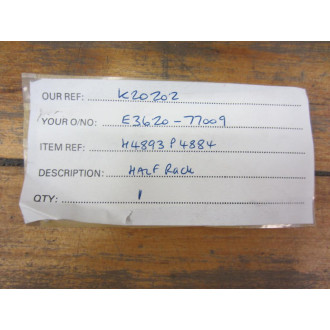 OUR REF: K20202
YOUR O/NO: E3620-77009
ITEM REF: H4893P4884
DESCRIPTION: HALF Rack
QTY: 1